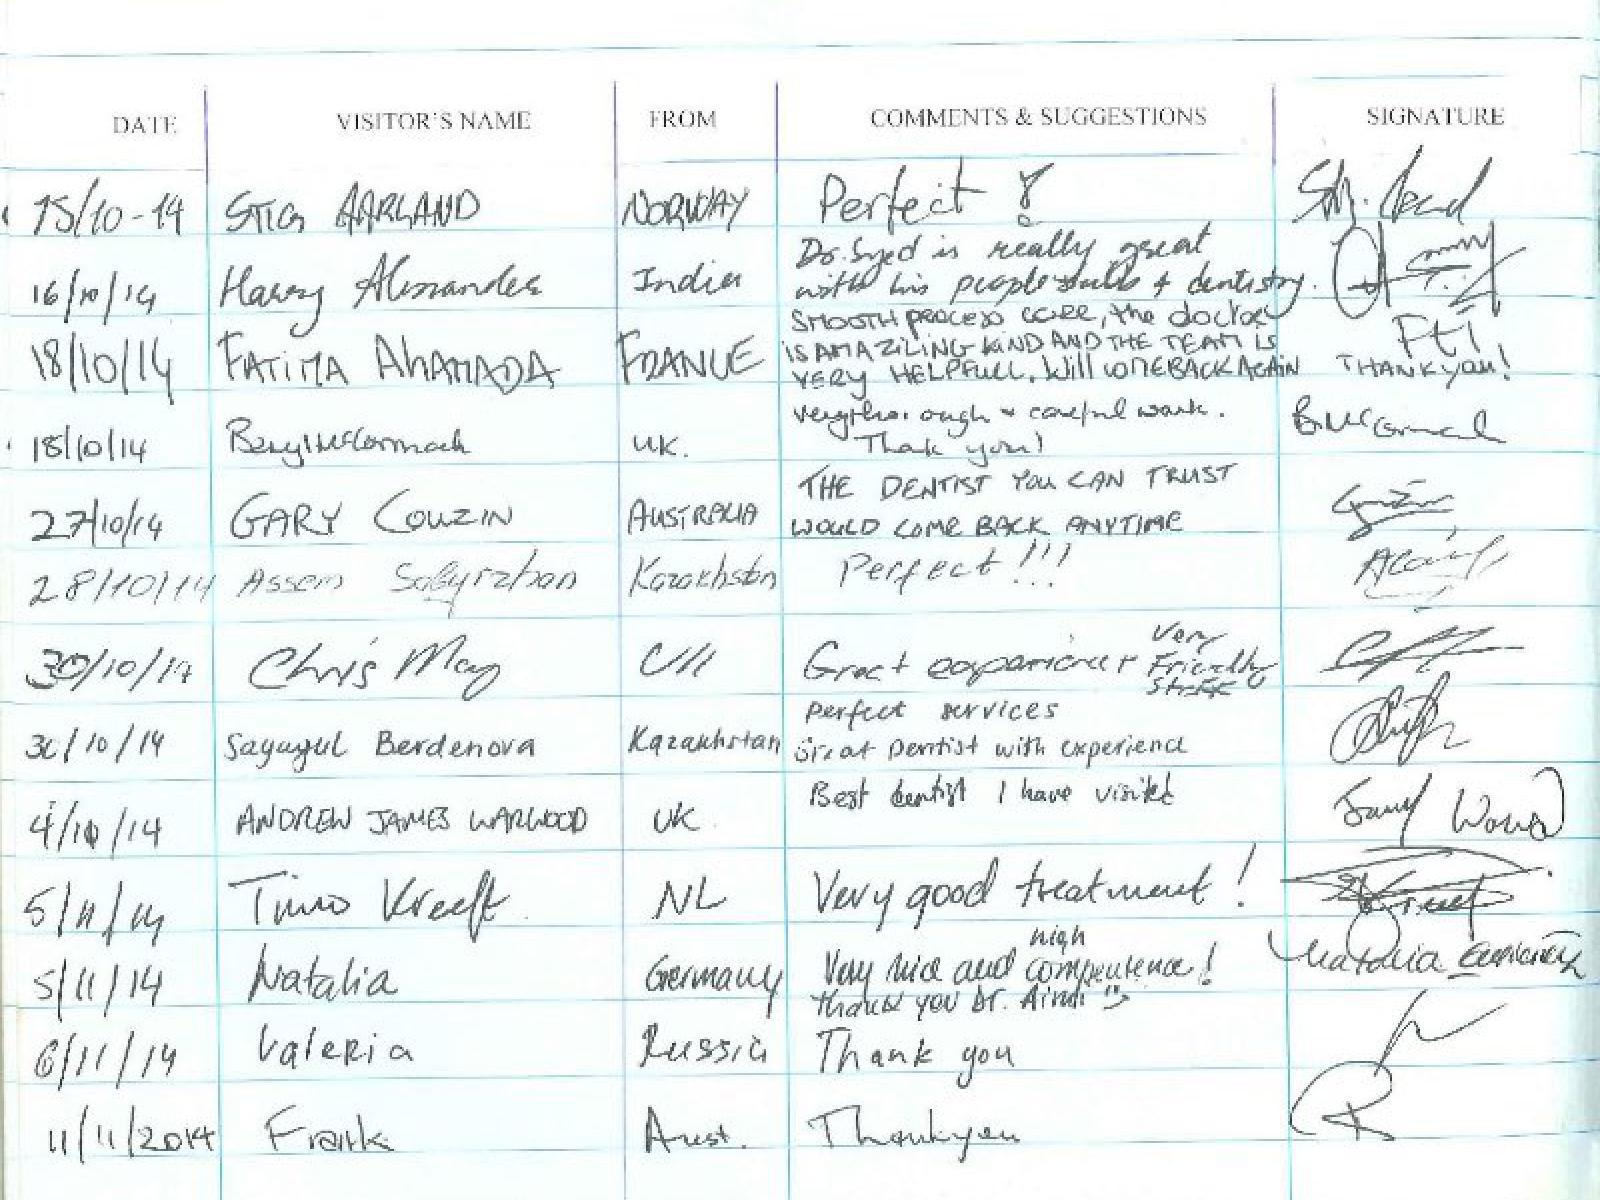 DATE VISITOR'S NAME FROM COMMENTS & SUGGESTIONS SIGNATURE
15/10-14 STIG AARLAND NORWAY Perfect !
Dr. Syed is really great
16/10/14 Harry Alexander India with his people skills + dentistry.
SMOOTH PROCESS CORE, the doctor
18/10/14 FATIMA AHAMADA FRANCE IS AMAZILING KIND AND THE TEAM IS
VERY HELPFULL, Will COME BACK AGAIN THANK you!
very thorough + careful work.
18/10/14 Beryl McCormack UK. Thank you! B McCormack
THE DENTIST YOU CAN TRUST
27/10/14 GARY COUZIN AUSTRALIA WOULD COME BACK ANYTIME
28/10/14 Assem Sabyrzhan Kazakhstan Perfect !!!
30/10/14 Chris May UK Great experience + Very Friendly Staff
perfect services
30/10/14 Sayagul Berdenova Kazakhstan Great Dentist with experienc
Best dentist I have visited
4/10/14 ANDREW JAMES WARWOOD UK
5/11/14 Timo Kreeft NL Very good treatment !
high
5/11/14 Natalia Germany Very nice and compeutence! Natalia
thank you Dr.
6/11/14 Valeria Russia Thank you
11/11/2014 Frank Aust. Thankyou